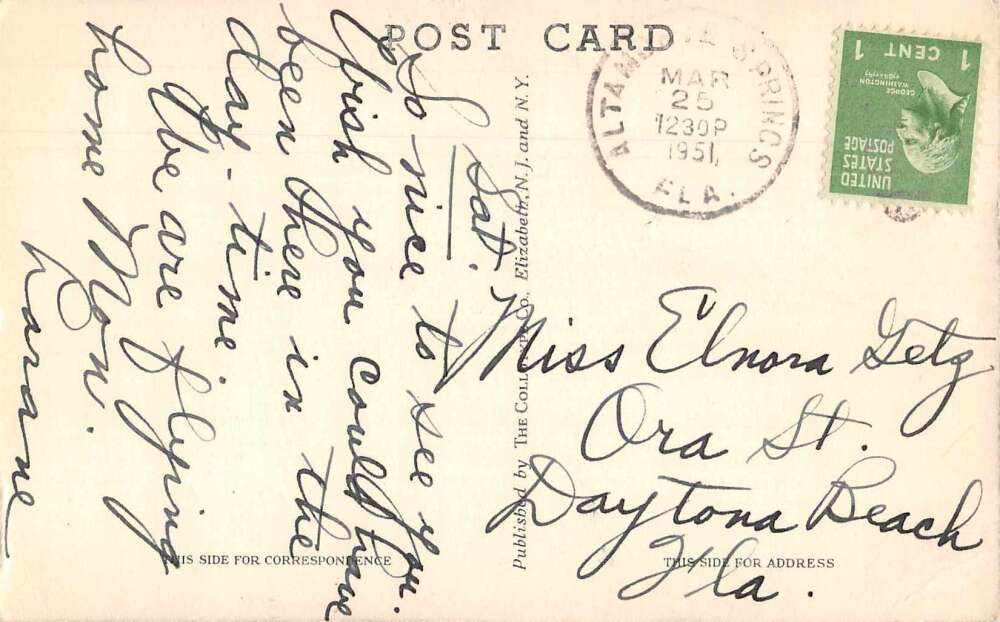 POST CARD
Sat.
So nice to see you.
Wish you could have
been there in the
day-time.
We are flying
home Mon.
Larame
THIS SIDE FOR CORRESPONDENCE
Published by THE COLLOTYPE CO., Elizabeth, N. J. and N. Y.
ALTAMONTE SPRINGS
MAR
25
1230P
1951
FLA.
1 CENT 1
GEORGE
WASHINGTON
UNITED
STATES
POSTAGE
Miss Elnora Getz
Ora St.
Daytona Beach
Fla.
THIS SIDE FOR ADDRESS